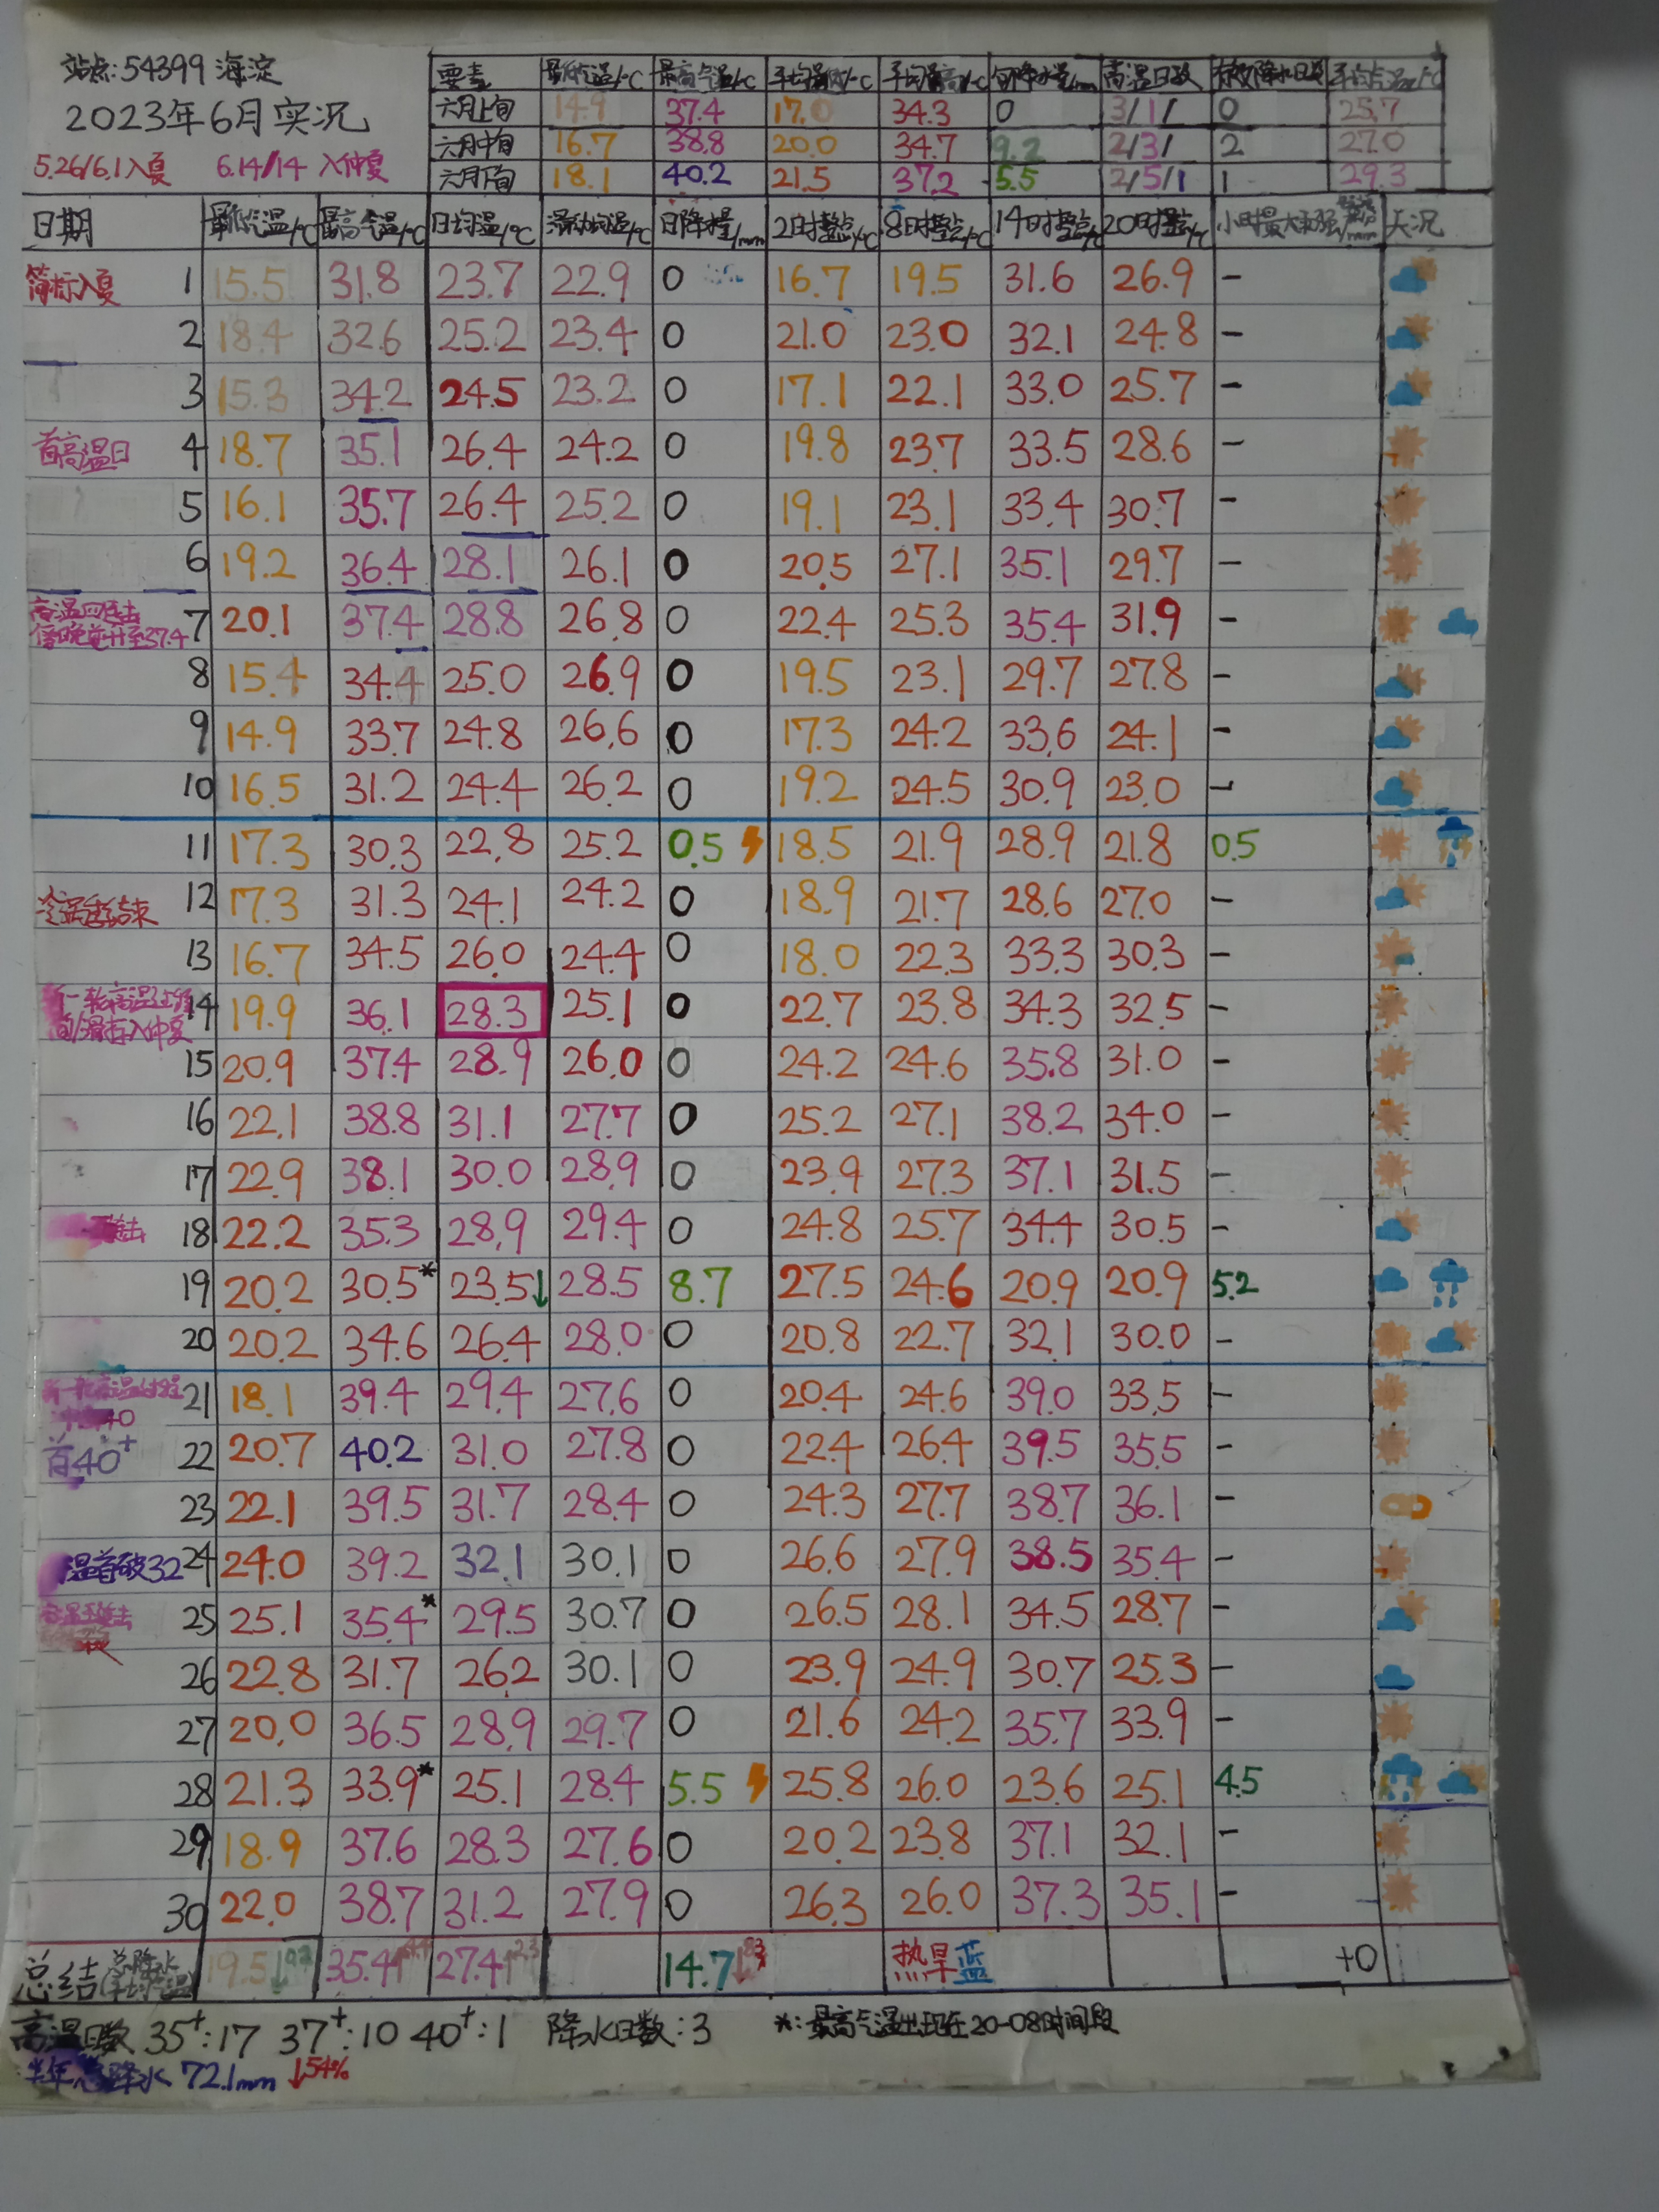 站点:54399 海淀
2023年6月实况
5.26/6.1入夏 6.14/14 入仲夏
要素 最低气温/℃ 最高气温/℃ 平均最低/℃ 平均最高/℃ 旬降水量/mm 高温日数 有效降水日数 平均气温/℃
六月上旬 14.9 37.4 17.0 34.3 0 3/1/ 0 25.7
六月中旬 16.7 38.8 20.0 34.7 9.2 2/3/ 2 27.0
六月下旬 18.1 40.2 21.5 37.2 5.5 2/5/1 1 29.3
日期 最低气温/℃ 最高气温/℃ 日均温/℃ 滑动均温/℃ 日降水量/mm 2时整点/℃ 8时整点/℃ 14时整点/℃ 20时整点/℃ 小时最大雨强 /mm 天况
简标入夏 1 15.5 31.8 23.7 22.9 0 16.7 19.5 31.6 26.9 -
2 18.4 32.6 25.2 23.4 0 21.0 23.0 32.1 24.8 -
3 15.3 34.2 24.5 23.2 0 17.1 22.1 33.0 25.7 -
首高温日 4 18.7 35.1 26.4 24.2 0 19.8 23.7 33.5 28.6 -
5 16.1 35.7 26.4 25.2 0 19.1 23.1 33.4 30.7 -
6 19.2 36.4 28.1 26.1 0 20.5 27.1 35.1 29.7 -
高温四连击
傍晚前升至37.4 7 20.1 37.4 28.8 26.8 0 22.4 25.3 35.4 31.9 -
8 15.4 34.4 25.0 26.9 0 19.5 23.1 29.7 27.8 -
9 14.9 33.7 24.8 26.6 0 17.3 24.2 33.6 24.1 -
10 16.5 31.2 24.4 26.2 0 19.2 24.5 30.9 23.0 -
11 17.3 30.3 22.8 25.2 0.5 18.5 21.9 28.9 21.8 0.5
冷涡结束 12 17.3 31.3 24.1 24.2 0 18.9 21.7 28.6 27.0 -
13 16.7 34.5 26.0 24.4 0 18.0 22.3 33.3 30.3 -
新一轮高温过程
入仲夏 14 19.9 36.1 28.3 25.1 0 22.7 23.8 34.3 32.5 -
15 20.9 37.4 28.9 26.0 0 24.2 24.6 35.8 31.0 -
16 22.1 38.8 31.1 27.7 0 25.2 27.1 38.2 34.0 -
17 22.9 38.1 30.0 28.9 0 23.9 27.3 37.1 31.5 -
连击 18 22.2 35.3 28.9 29.4 0 24.8 25.7 34.4 30.5 -
19 20.2 30.5* 23.5↓ 28.5 8.7 27.5 24.6 20.9 20.9 5.2
20 20.2 34.6 26.4 28.0 0 20.8 22.7 32.1 30.0 -
新一轮高温过程
40 21 18.1 39.4 29.4 27.6 0 20.4 24.6 39.0 33.5 -
首40+ 22 20.7 40.2 31.0 27.8 0 22.4 26.4 39.5 35.5 -
23 22.1 39.5 31.7 28.4 0 24.3 27.7 38.7 36.1 -
温首破32 24 24.0 39.2 32.1 30.1 0 26.6 27.9 38.5 35.4 -
高温五连击 25 25.1 35.4* 29.5 30.7 0 26.5 28.1 34.5 28.7 -
26 22.8 31.7 26.2 30.1 0 23.9 24.9 30.7 25.3 -
27 20.0 36.5 28.9 29.7 0 21.6 24.2 35.7 33.9 -
28 21.3 33.9* 25.1 28.4 5.5 25.8 26.0 23.6 25.1 4.5
29 18.9 37.6 28.3 27.6 0 20.2 23.8 37.1 32.1 -
30 22.0 38.7 31.2 27.9 0 26.3 26.0 37.3 35.1 -
总结(总降水 平均气温) 19.5↓ 35.4↑ 27.4↑2.3 14.7↓ 热旱蓝 +0
高温日数 35+:17 37+:10 40+:1 降水日数:3 *:最高气温出现在20-08时间段
半年总降水 72.1mm ↓54%